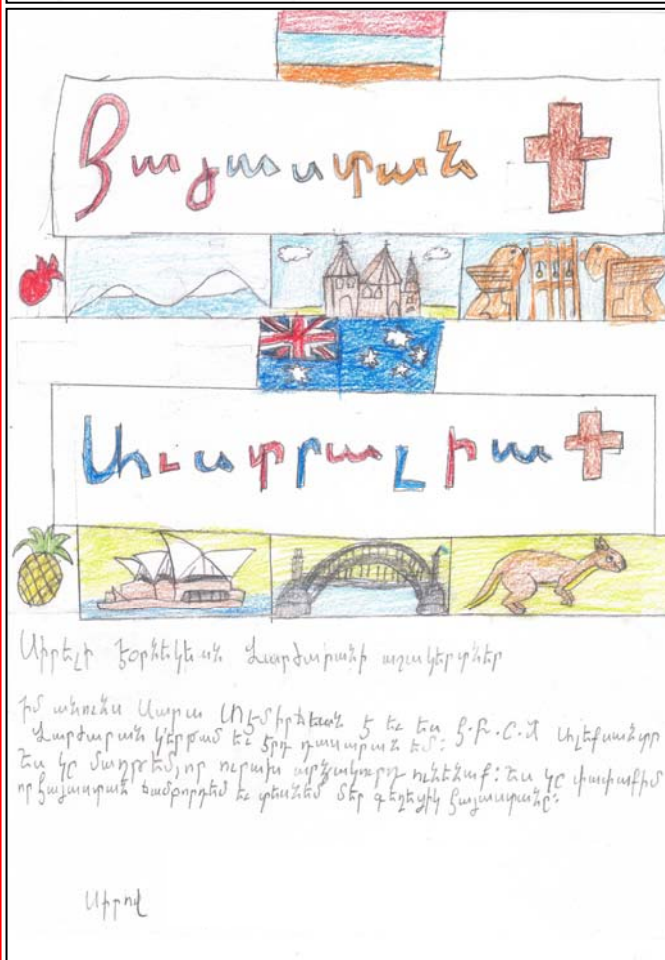 Հայաստան
Աւստրալիա
Սիրելի Եօրնեկեան Վարժարանի աշակերտներ
Իմ անունս Սարա Մուշմիրճեան է եւ ես Հ.Բ.Ը.Մ Ալեքսանտր
Վարժարան կ'երթամ եւ երդ դասարան եմ:
Ես կը մաղթեմ, որ ուրախ արձակուրդ ունենաք: Ես կը փափաքիմ
որ Հայաստան ճամբորդեմ եւ տեսնեմ մեր գեղեցիկ Հայաստանը:
Սիրով